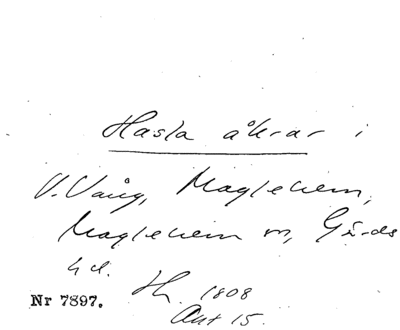 Hasla åkrar i
V. Vång, Maglehem,
Maglehem sn, Gärds
hd. Hh. 1808
Akt 15.
Nr 7897.